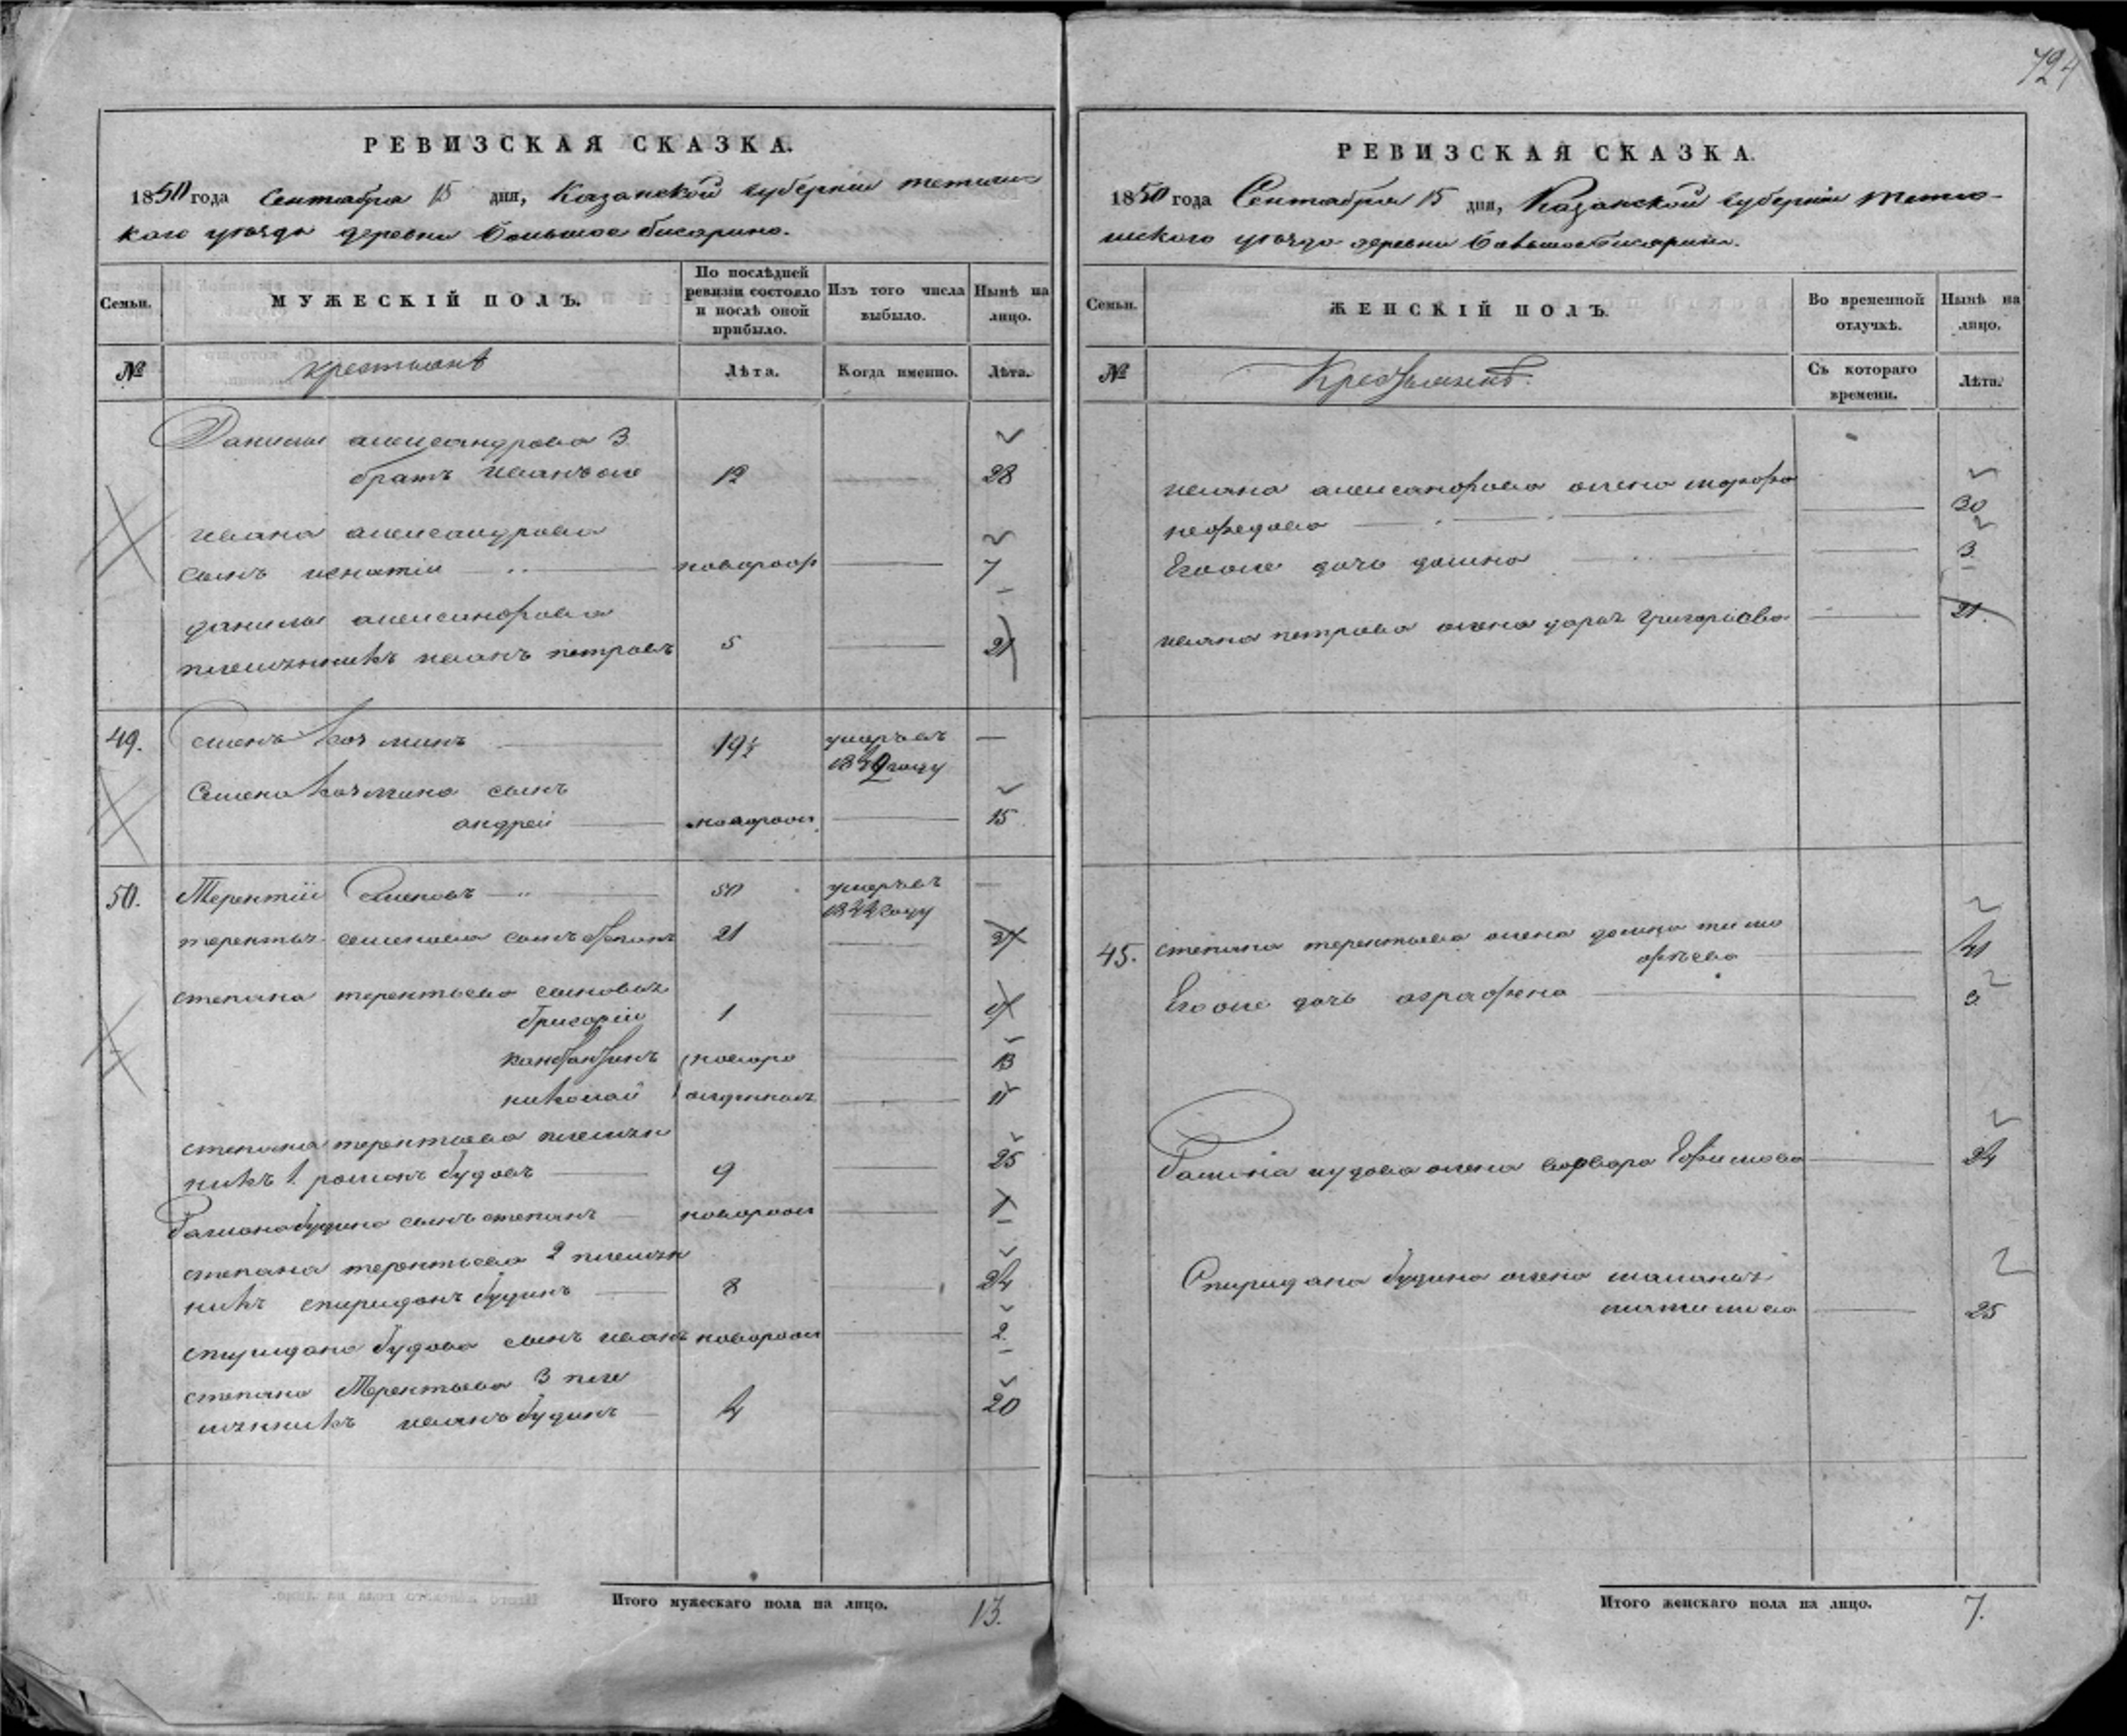 724
РЕВИЗСКАЯ СКАЗКА.
1850 года Сентабра 15 дня, Казанской губернiи тетюш
каго уѣзда деревни большое бисарино.
Семьи. МУЖЕСКIЙ ПОЛЪ. По послѣдней ревизiи состояло и послѣ оной прибыло. Изъ того числа выбыло. Нынѣ на лицо.
№ крестьянѣ Лѣта. Когда именно. Лѣта.
Данилы александрова 3
братъ Иванъ 12 28
ивана александрова
сынъ игнатiи новорож 7
данилы александрова
племяникъ иванъ петровъ 5 21
49. семенъ козминъ 19½ умеръ въ —
1849 году
Семена козмина сынъ
андрей новорож 15
50. Терентiи Семеновъ 50 умеръ въ —
1844 году
терентья семенова сынъ степанъ 21 37
степана терентьева сыновья
Григорiи 1
константинъ новоро 13
николай жденныя 11
степана терентьева племян
никъ 1 романъ 9 25
сынъ степанъ новорож 1
степана терентьева 2 племян
никъ спиридонъ 8 24
спиридона сынъ иванъ новорож 2
степана Терентьева 3 пле
мянникъ иванъ 4 20
Итого мужескаго пола на лицо. 13.
РЕВИЗСКАЯ СКАЗКА.
1850 года Сентабря 15 дня, Казанской губернiи тетю-
шкого уѣзда деревни большое бисарино.
Семьи. ЖЕНСКIЙ ПОЛЪ. Во временной отлучкѣ. Нынѣ на лицо.
№ Крестьянѣ. Съ котораго времени. Лѣта.
ивана александрова жена
нефедова 30
Его же дочь домна 3
ивана петрова жена дарья григорьева 21.
45. степана терентьева жена домна тимо
фѣева 41
Его же дочь аграфена 3
жена варвара Ефимова 24
Спиридона жена маланья
25
Итого женскаго пола на лицо. 7.